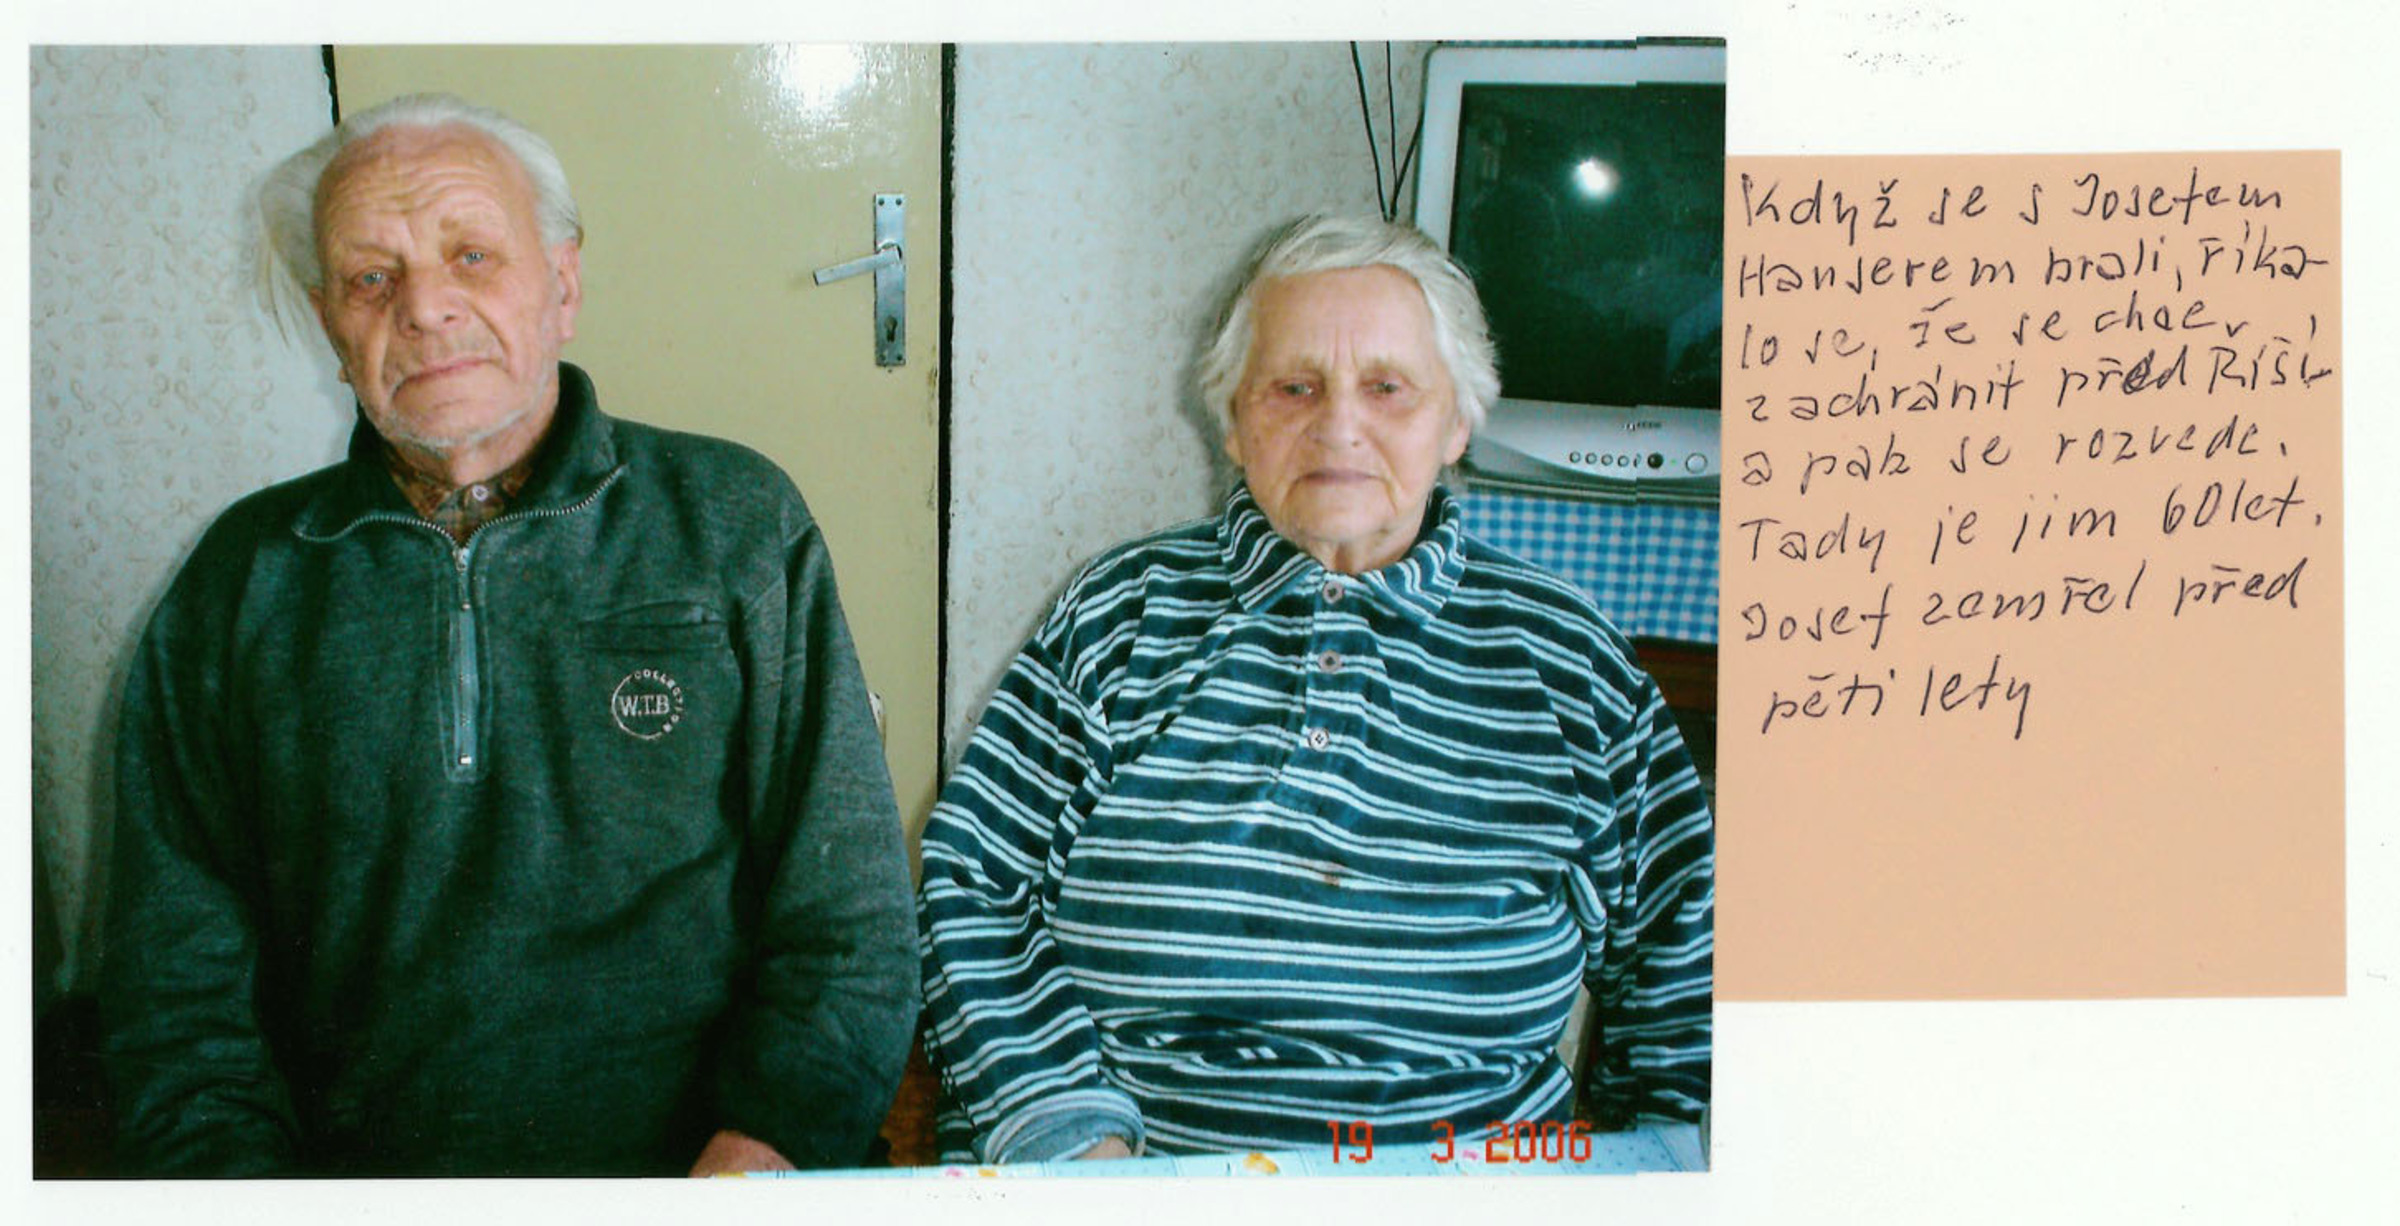 COLLECTION
W.T.B
19 3.2006
Když se s Josefem
Hanserem brali, říka-
lo se, že se chce
zachránit před Říší
a pak se rozvede.
Tady je jim 60 let.
Josef zemřel před
pěti lety